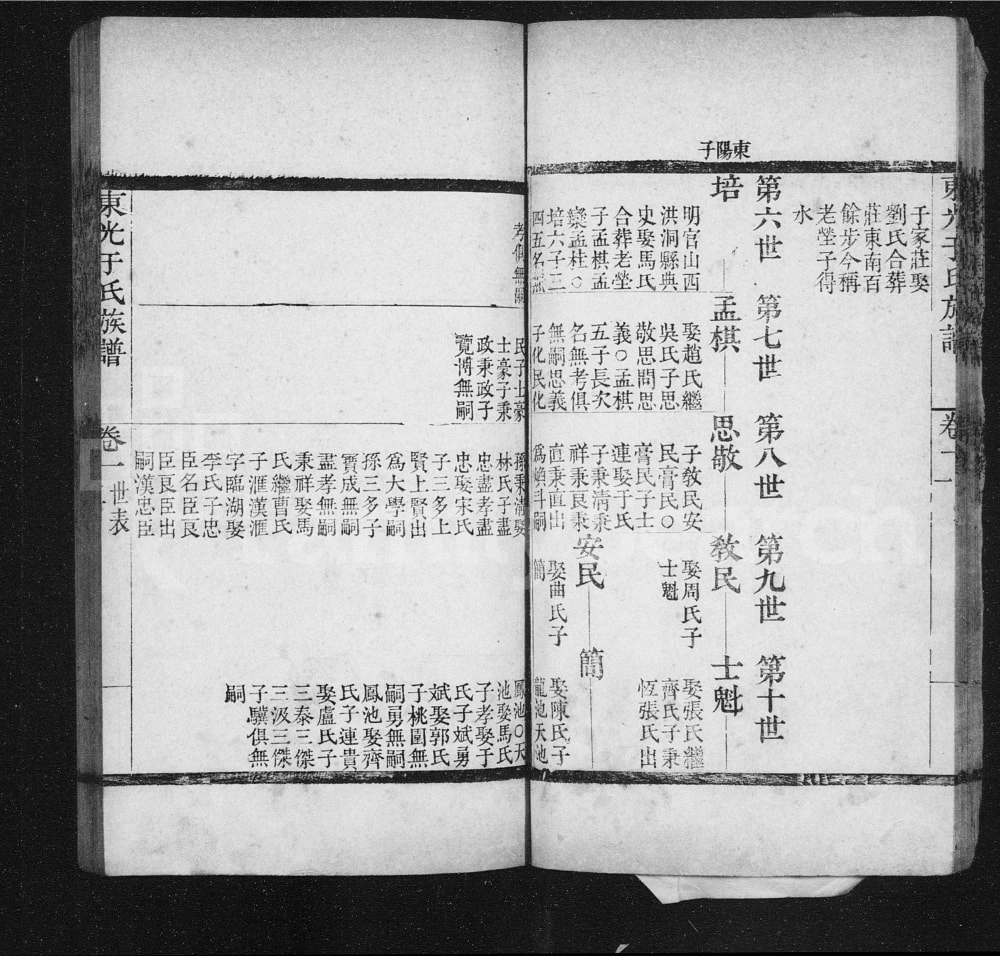 東光于氏族譜
卷一
子家莊娶
劉氏合葬
莊東南百
餘步今稱
老塋子得
水
東陽子
第六世
第七世
第八世
第九世
第十世
培
明官山西
洪洞縣典
史娶馬氏
合葬老塋
子孟棋孟
欒孟桂○
培六子三
四五名無
考俱無嗣
孟棋
娶趙氏繼
吳氏子思
敬思問思
義○孟棋
五子長次
名無考俱
無嗣思義
子化民化
民子士豪
士豪子秉
政秉政子
覽博無嗣
思敬
子教民安
民膏民○
膏民子士
連娶于氏
子秉清秉
祥秉良秉
直秉直出
爲嬾斗嗣
孫秉清娶
林氏子盡
忠盡孝盡
忠娶宋氏
子三多上
賢上賢出
爲大學嗣
孫三多子
寳成無嗣
盡孝無嗣
秉祥娶馬
氏繼曹氏
子滙漢滙
字臨湖娶
李氏子忠
臣名臣良
臣良臣出
嗣漢忠臣
教民
娶周氏子
士魁
安民
娶曲氏子
簡
士魁
娶張氏繼
齊氏子秉
恆張氏出
簡
娶陳氏子
龍池天池
鳳池○天
池娶馬氏
子孝娶于
氏子斌勇
斌娶郭氏
子桃圍無
嗣勇無嗣
鳳池娶齊
氏子連貴
娶盧氏子
三泰三傑
三汲三傑
子驥俱無
嗣
東光于氏族譜
卷一
世表